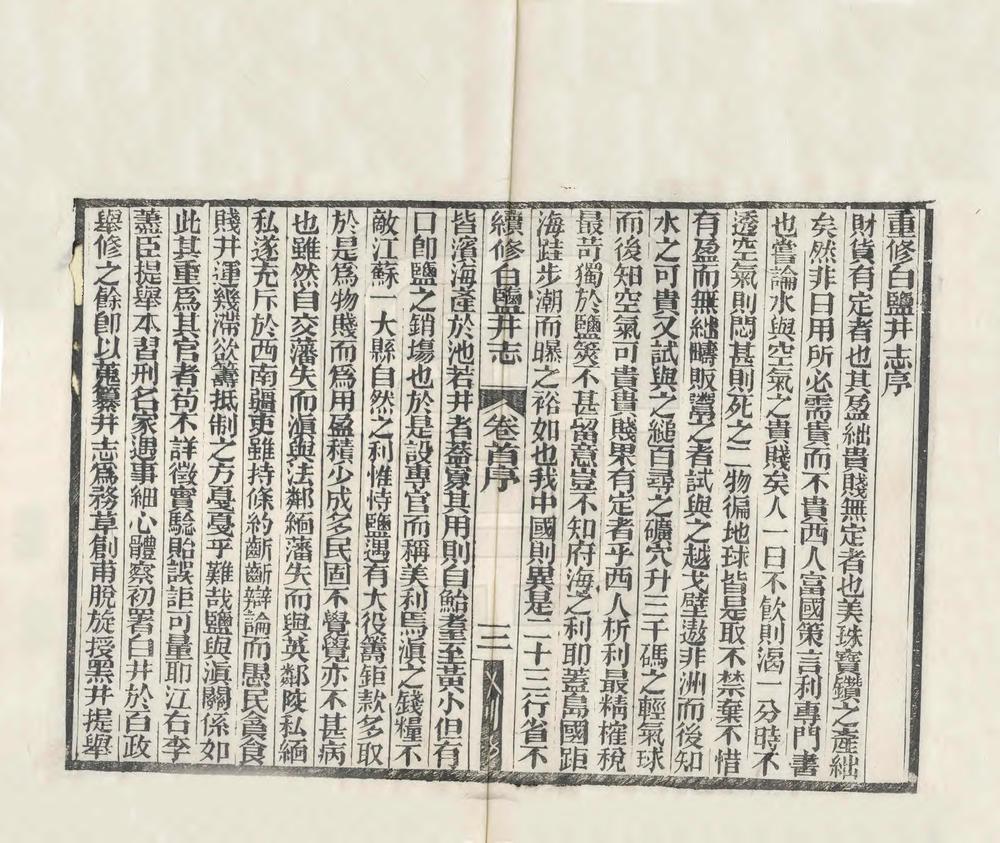 重修白鹽井志序
財貨有定者也其盈絀貴賤無定者也美珠寶鑽之產絀
矣然非日用所必需貴而不貴西人富國策言利專門書
也嘗論水與空氣之貴賤矣人一日不飲則渴一分時不
透空氣則悶甚則死之二物徧地球皆是取不禁棄不惜
有盈而無絀疇販鬻之者試與之越戈壁遨非洲而後知
水之可貴又試與之縋百尋之礦穴升三千碼之輕氣球
而後知空氣可貴貴賤果有定者乎西人析利最精榷稅
最苛獨於鹽筴不甚留意豈不知府海之利耶蓋島國距
海跬步潮而曝之裕如也我中國則異是二十三行省不
續修白鹽井志
卷首序
三
皆濱海產於池若井者蓋寡其用則自鮐耈至黃小但有
口卽鹽之銷場也於是設專官而稱美利焉滇之錢糧不
敵江蘇一大縣自然之利惟恃鹽遇有大役籌鉅款多取
於是爲物賤而爲用盈積少成多民固不覺覺亦不甚病
也雖然自交藩失而滇與法鄰緬藩失而與英鄰陵私緬
私遂充斥於西南疆吏雖持條約齗齗辯論而愚民貪食
賤井運幾滯欲籌抵制之方戞戞乎難哉鹽與滇關係如
此其重爲其官者苟不詳徵實驗貽誤詎可量耶江右李
藎臣提舉本習刑名家遇事細心體察初署白井於百政
舉修之餘卽以蒐纂井志爲務草創甫脫旋授黑井提舉